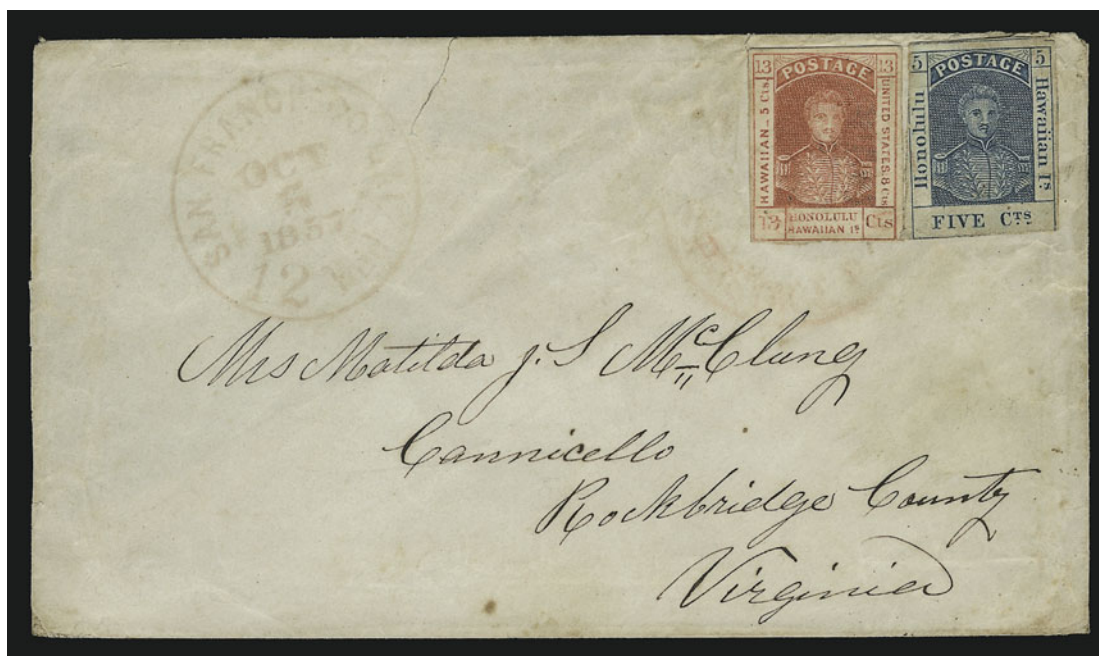 SAN FRANCISCO CAL
OCT
5
1857
12
13 POSTAGE 13
HAWAIIAN_5 Cts
UNITED STATES.8 Cts
13 HONOLULU Cts
HAWAIIAN Is
5 POSTAGE 5
Honolulu
Hawaiian Is.
FIVE CTS
Mrs Matilda J. S McClung
Cannicello
Rockbridge County
Virginia